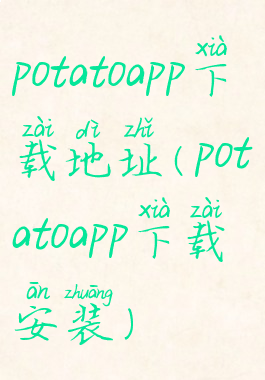 xià
potatoapp下
zài dì zhǐ
载地址(pot
xià zài
atoapp下载
ān zhuāng
安装)